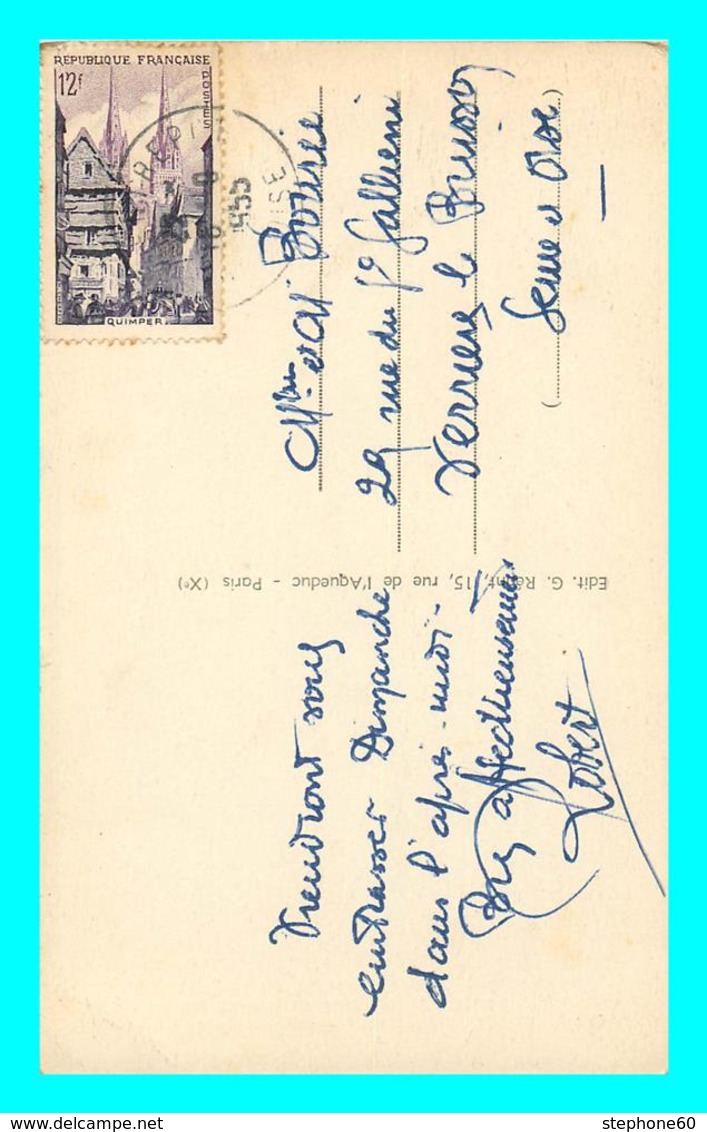 RÉPUBLIQUE FRANÇAISE
12F
POSTES
QUIMPER
1955
OISE
Viendront vous
embrasser Dimanche
dans l'après-midi.
Bien affectueusement
Robert
Edit. G. Réant, 15, rue de l'Aqueduc - Paris (Xe)
Mme et M
29 rue du Gl Gallieni
Verrières le Buisson
(Seine et Oise)
stephone60